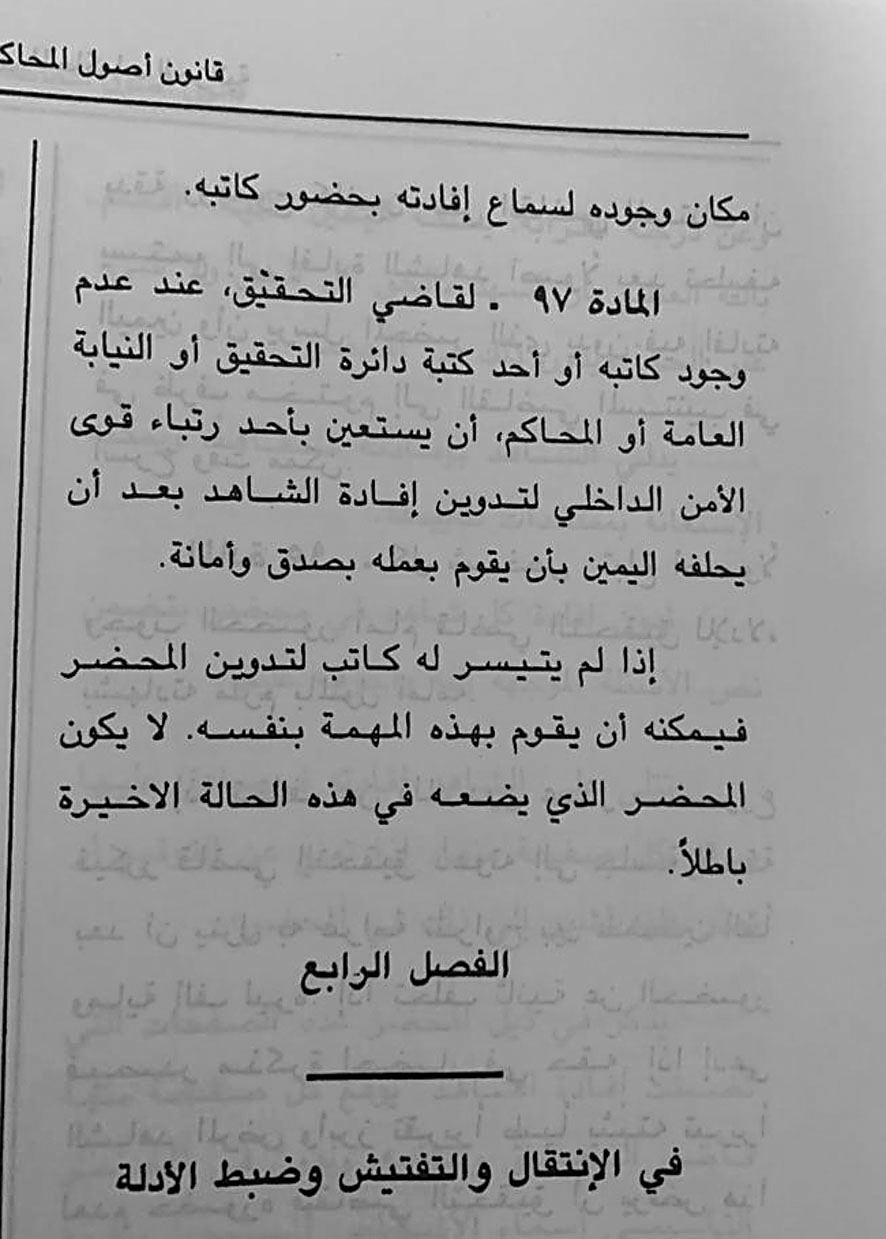 قانون أصول المحاك
مكان وجوده لسماع إفادته بحضور كاتبه.
المادة ٩٧ . لقاضي التحقيق، عند عدم
وجود كاتبه أو أحد كتبة دائرة التحقيق أو النيابة
العامة أو المحاكم، أن يستعين بأحد رتباء قوى
الأمن الداخلي لتدوين إفادة الشاهد بعد أن
يحلفه اليمين بأن يقوم بعمله بصدق وأمانة.
إذا لم يتيسر له كاتب لتدوين المحضر
فيمكنه أن يقوم بهذه المهمة بنفسه. لا يكون
المحضر الذي يضعه في هذه الحالة الاخيرة
باطلاً.
الفصل الرابع
في الإنتقال والتفتيش وضبط الأدلة